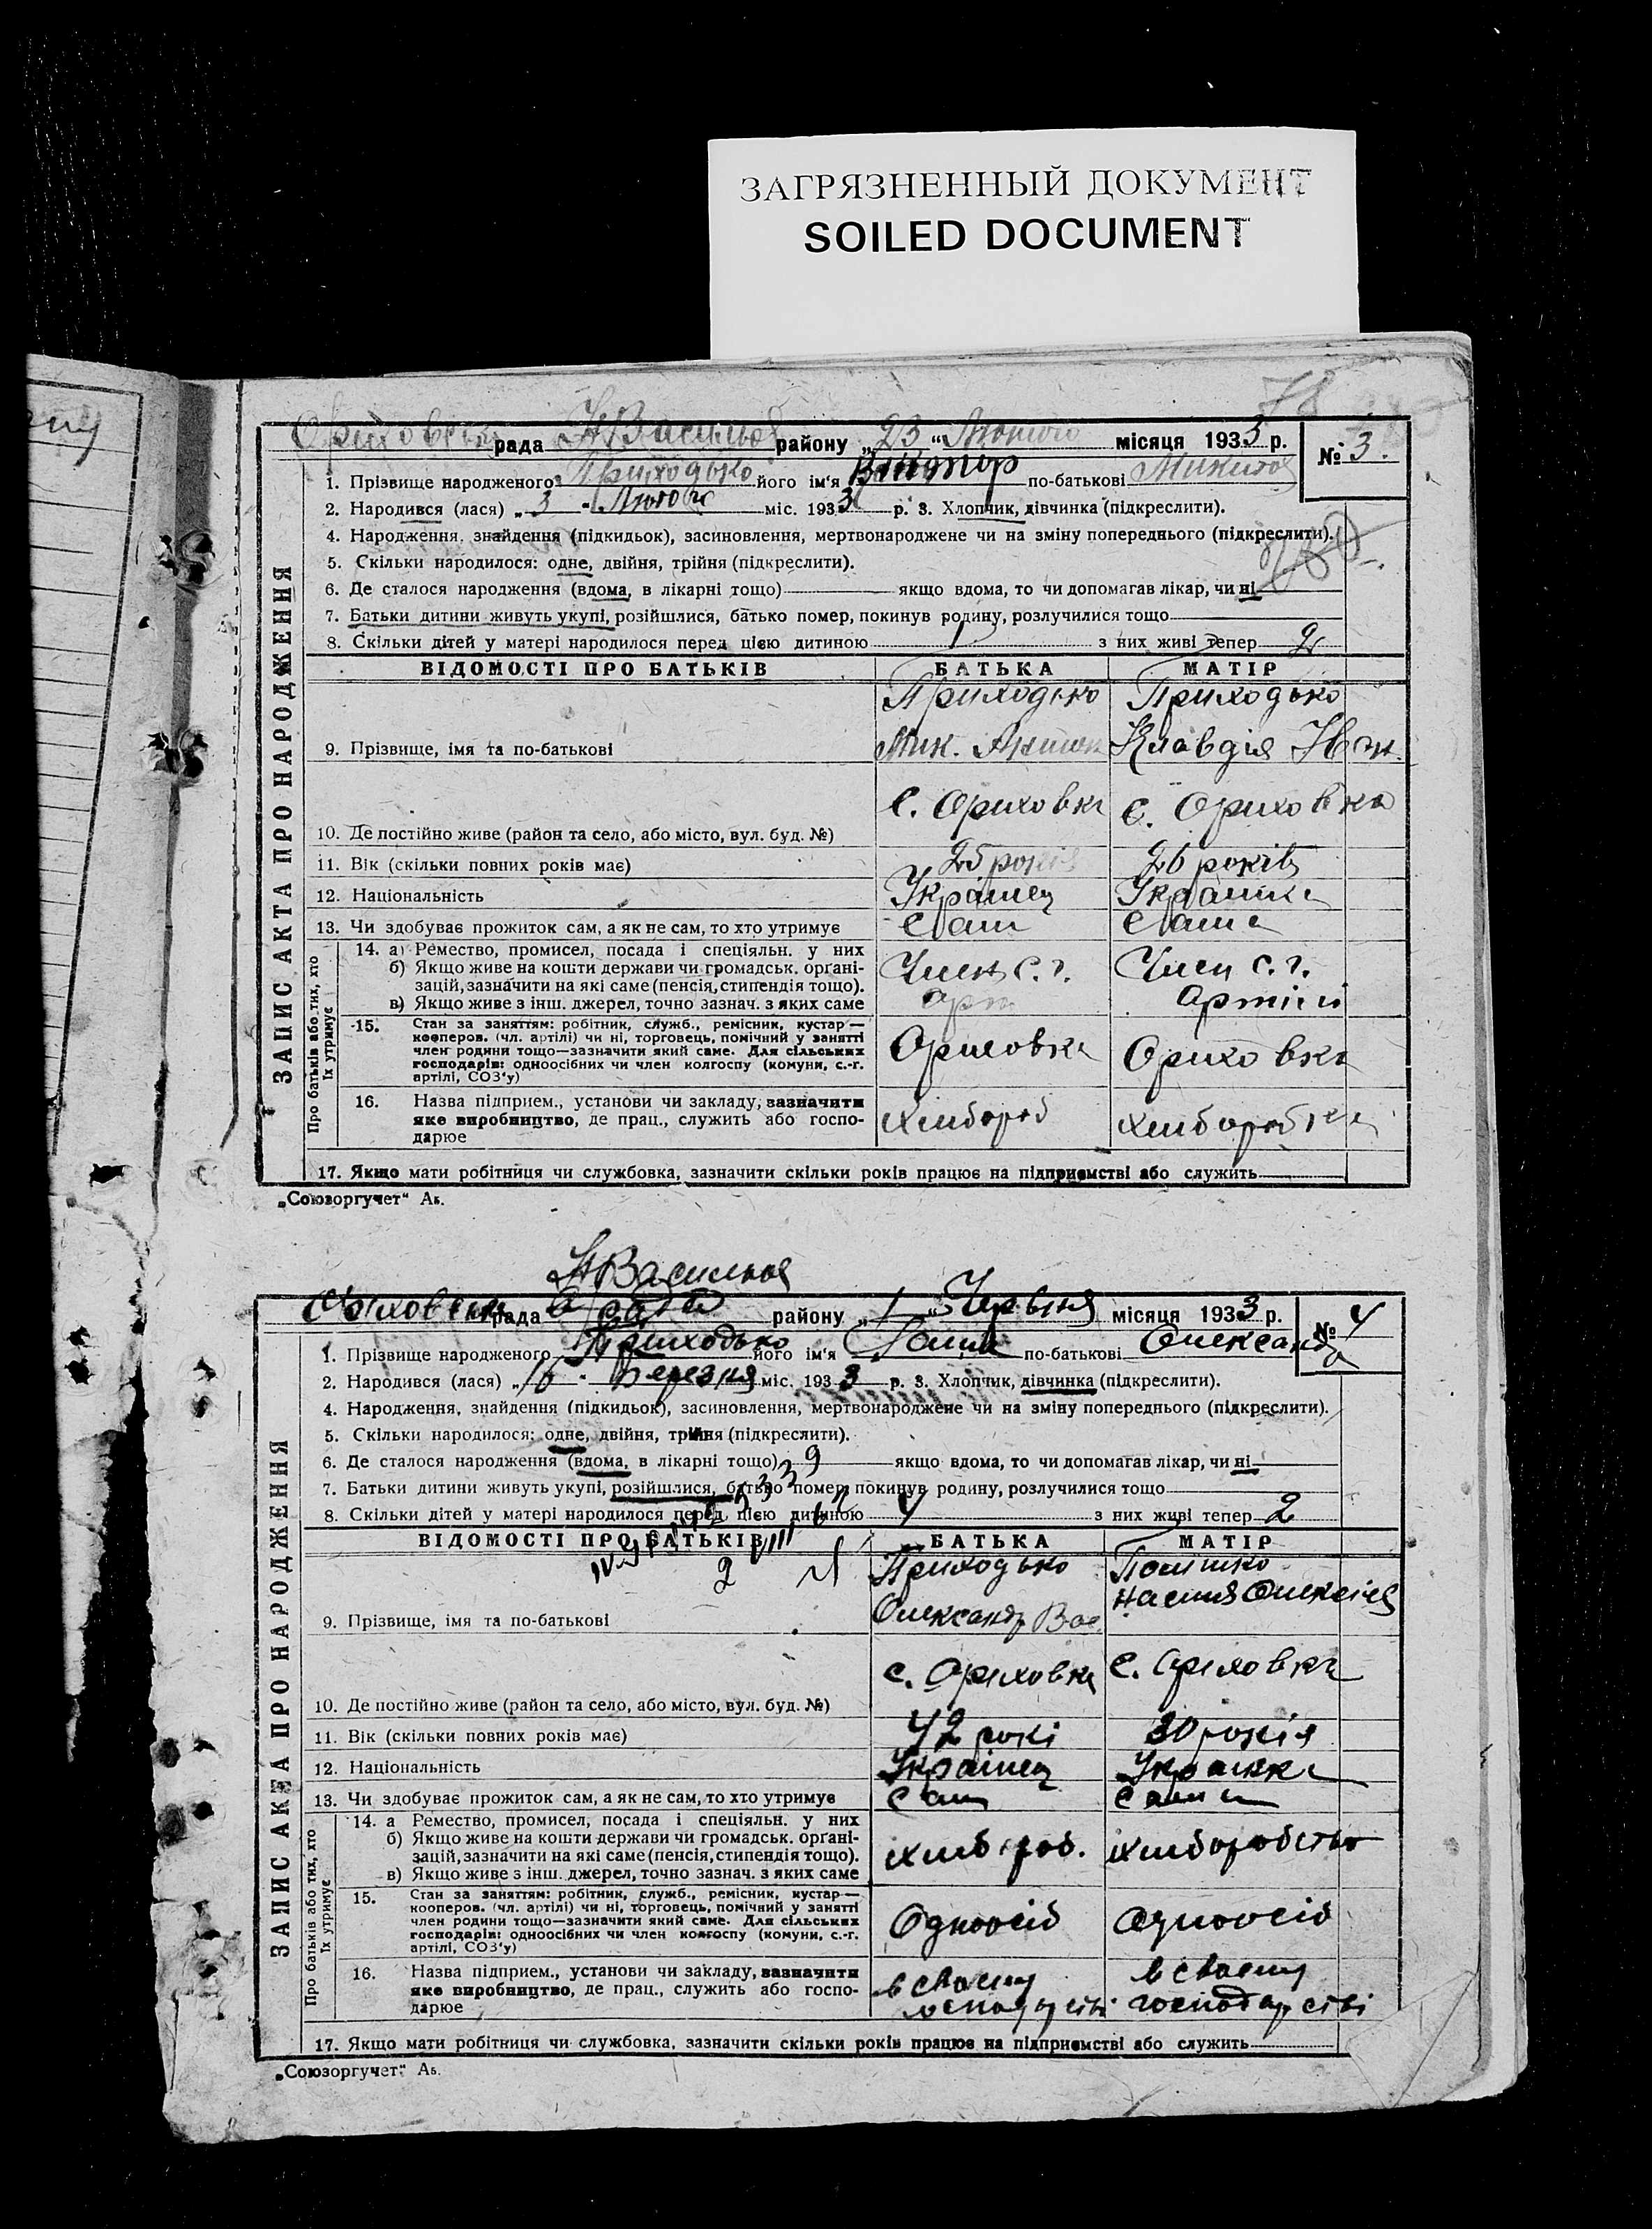 ЗАГРЯЗНЕННЫЙ ДОКУМЕНТ
SOILED DOCUMENT
78
рада Н Василів району „23“ Лютого місяця 1933 р. № 3.
1. Прізвище народженого Приходько його ім'я Виктор по-батькові Микитов
2. Народився (лася) „3“ Лютого міс. 1933 р. 3. Хлопчик, дівчинка (підкреслити).
4. Народження, знайдення (підкидьок), засиновлення, мертвонароджене чи на зміну попереднього (підкреслити).
5. Скільки народилося: одне, двійня, трійня (підкреслити).
6. Де сталося народження (вдома, в лікарні тощо) якщо вдома, то чи допомагав лікар, чи ні
7. Батьки дитини живуть укупі, розійшлися, батько помер, покинув родину, розлучилися тощо
8. Скільки дітей у матері народилося перед цією дитиною 1 з них живі тепер 2
ЗАПИС АКТА ПРО НАРОДЖЕННЯ
ВІДОМОСТІ ПРО БАТЬКІВ БАТЬКА МАТІР
Приходько Приходько
9. Прізвище, імя та по-батькові Мик. Клавдія
с. Ориховка с. Ориховка
10. Де постійно живе (район та село, або місто, вул. буд. №)
11. Вік (скільки повних років має) 25 років 26 років
12. Національність Украинец Украинка
13. Чи здобуває прожиток сам, а як не сам, то хто утримує Сам Сама
Про батьків або тих, хто їх утримує
14. а) Ремество, промисел, посада і спеціяльн. у них Член с. г. Член с. г.
б) Якщо живе на кошти держави чи громадськ. органі-
зацій, зазначити на які саме (пенсія, стипендія тощо).
в) Якщо живе з інш. джерел, точно зазнач. з яких саме арт артілі
15. Стан за заняттям: робітник, служб., ремісник, кустар—
кооперов. (чл. артілі) чи ні, торговець, помічний у занятті
член родини тощо—зазначити який саме. Для сільських
господарів: одноосібних чи член колгоспу (комуни, с.-г.
артілі, СОЗ'у) Ориховка Ориховка
16. Назва підприєм., установи чи закладу, зазначити
яке виробництво, де прац., служить або госпо-
дарює хлибороб хлиборобка
17. Якщо мати робітниця чи службовка, зазначити скільки років працює на підприємстві або служить
„Союзоргучет“ Аь.
Н Василів
рада району „1“ Червня місяця 1933 р. № 4
1. Прізвище народженого Приходько його ім'я по-батькові Олександ
2. Народився (лася) „16“ Березня міс. 1933 р. 3. Хлопчик, дівчинка (підкреслити).
4. Народження, знайдення (підкидьок), засиновлення, мертвонароджене чи на зміну попереднього (підкреслити).
5. Скільки народилося: одне, двійня, трійня (підкреслити).
6. Де сталося народження (вдома, в лікарні тощо) якщо вдома, то чи допомагав лікар, чи ні
7. Батьки дитини живуть укупі, розійшлися, батько помер, покинув родину, розлучилися тощо
8. Скільки дітей у матері народилося перед цією дитиною 4 з них живі тепер 2
ЗАПИС АКТА ПРО НАРОДЖЕННЯ
ВІДОМОСТІ ПРО БАТЬКІВ БАТЬКА МАТІР
Приходько
9. Прізвище, імя та по-батькові Олександр Вас.
с. Ориховка с. Ориховка
10. Де постійно живе (район та село, або місто, вул. буд. №)
11. Вік (скільки повних років має) 42 рокі 30 років
12. Національність Українец Украинка
13. Чи здобуває прожиток сам, а як не сам, то хто утримує Сам Сама
Про батьків або тих, хто їх утримує
14. а Ремество, промисел, посада і спеціяльн. у них
б) Якщо живе на кошти держави чи громадськ. органі-
зацій, зазначити на які саме (пенсія, стипендія тощо). хлибороб. хлиборобство
в) Якщо живе з інш. джерел, точно зазнач. з яких саме
15. Стан за заняттям: робітник, служб., ремісник, кустар—
кооперов. (чл. артілі) чи ні, торговець, помічний у занятті
член родини тощо—зазначити який саме. Для сільських
господарів: одноосібних чи член колгоспу (комуни, с.-г.
артілі, СОЗ'у) Одноосіб Одноосіб
16. Назва підприєм., установи чи закладу, зазначити в своему в своему
яке виробництво, де прац., служить або госпо-
дарює господарстві господарстві
17. Якщо мати робітниця чи службовка, зазначити скільки років працює на підприємстві або служить
„Союзоргучет“ Аь.